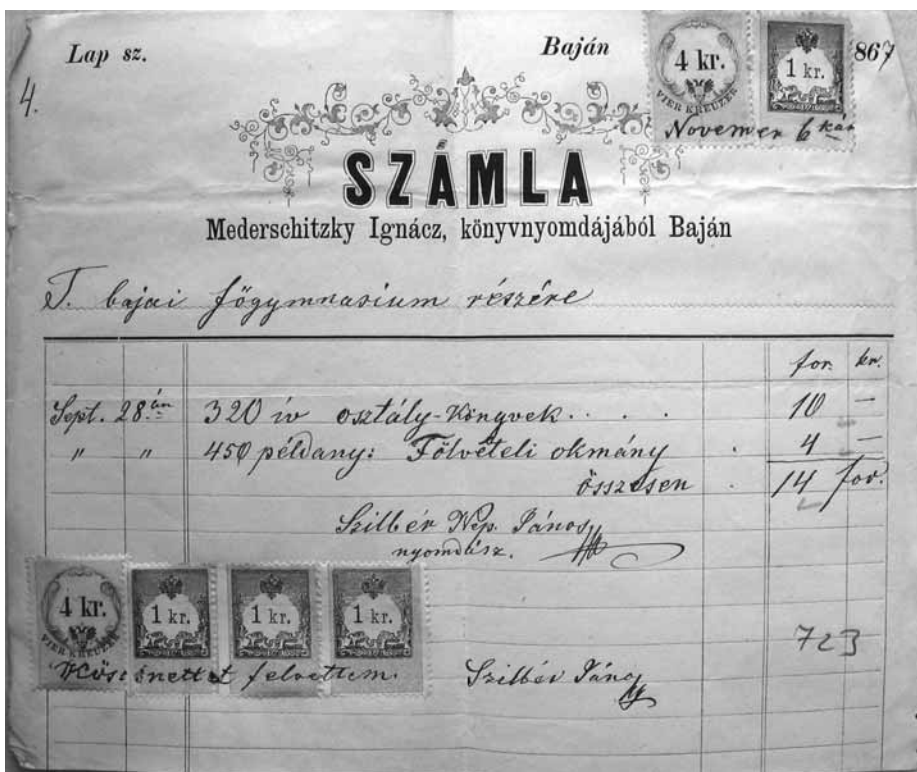 Lap sz. Baján 867
4 kr. 1 kr.
VIER KREUZER
4.
Novemer 6 kán
SZÁMLA
Mederschitzky Ignácz, könyvnyomdájából Baján
T. bajai főgymnasium részére
for. kr.
Sept. 28.án 320 ív osztály-könyvek . . . . 10 —
" " 450 példany: Fölvételi okmány . 4 —
összesen . 14 for.
Szilbér Nep. János
nyomdász.
4 kr. 1 kr. 1 kr. 1 kr.
VIER KREUZER
723
felvettem. Szilbér János